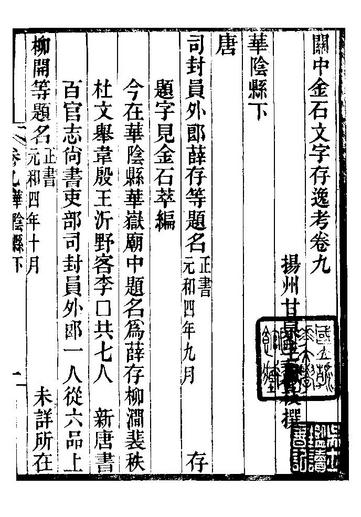 關中金石文字存逸考卷九
揚州甘泉毛鳳枝撰
華陰縣下
唐
司封員外郎薛存等題名 正書 元和四年九月 存
題字見金石萃編
今在華陰縣華嶽廟中題名為薛存柳澗裴秩
杜文舉韋殷王沂野客李口共七人 新唐書
百官志尚書吏部司封員外郎一人從六品上
柳開等題名 正書 元和四年十月 未詳所在
卷九華陰縣下 一